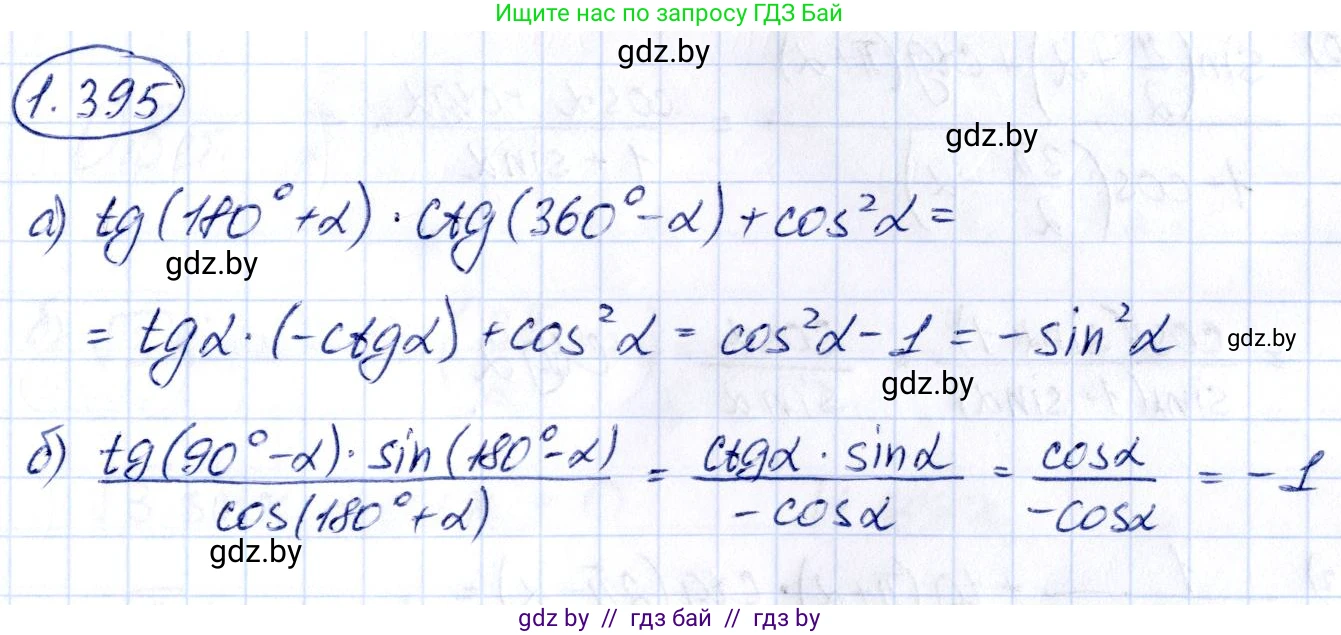 Ищите нас по запросу ГДЗ Бай
gdz.by
1.395
gdz.by
а) tg(180° + α) · ctg(360° - α) + cos²α =
gdz.by
= tgα · (-ctgα) + cos²α = cos²α - 1 = -sin²α
gdz.by
gdz.by
б) tg(90° - α) · sin(180° - α) / cos(180° + α) = ctgα · sinα / -cosα = cosα / -cosα = -1
gdz.by
gdz by // гдз бай // gdz by